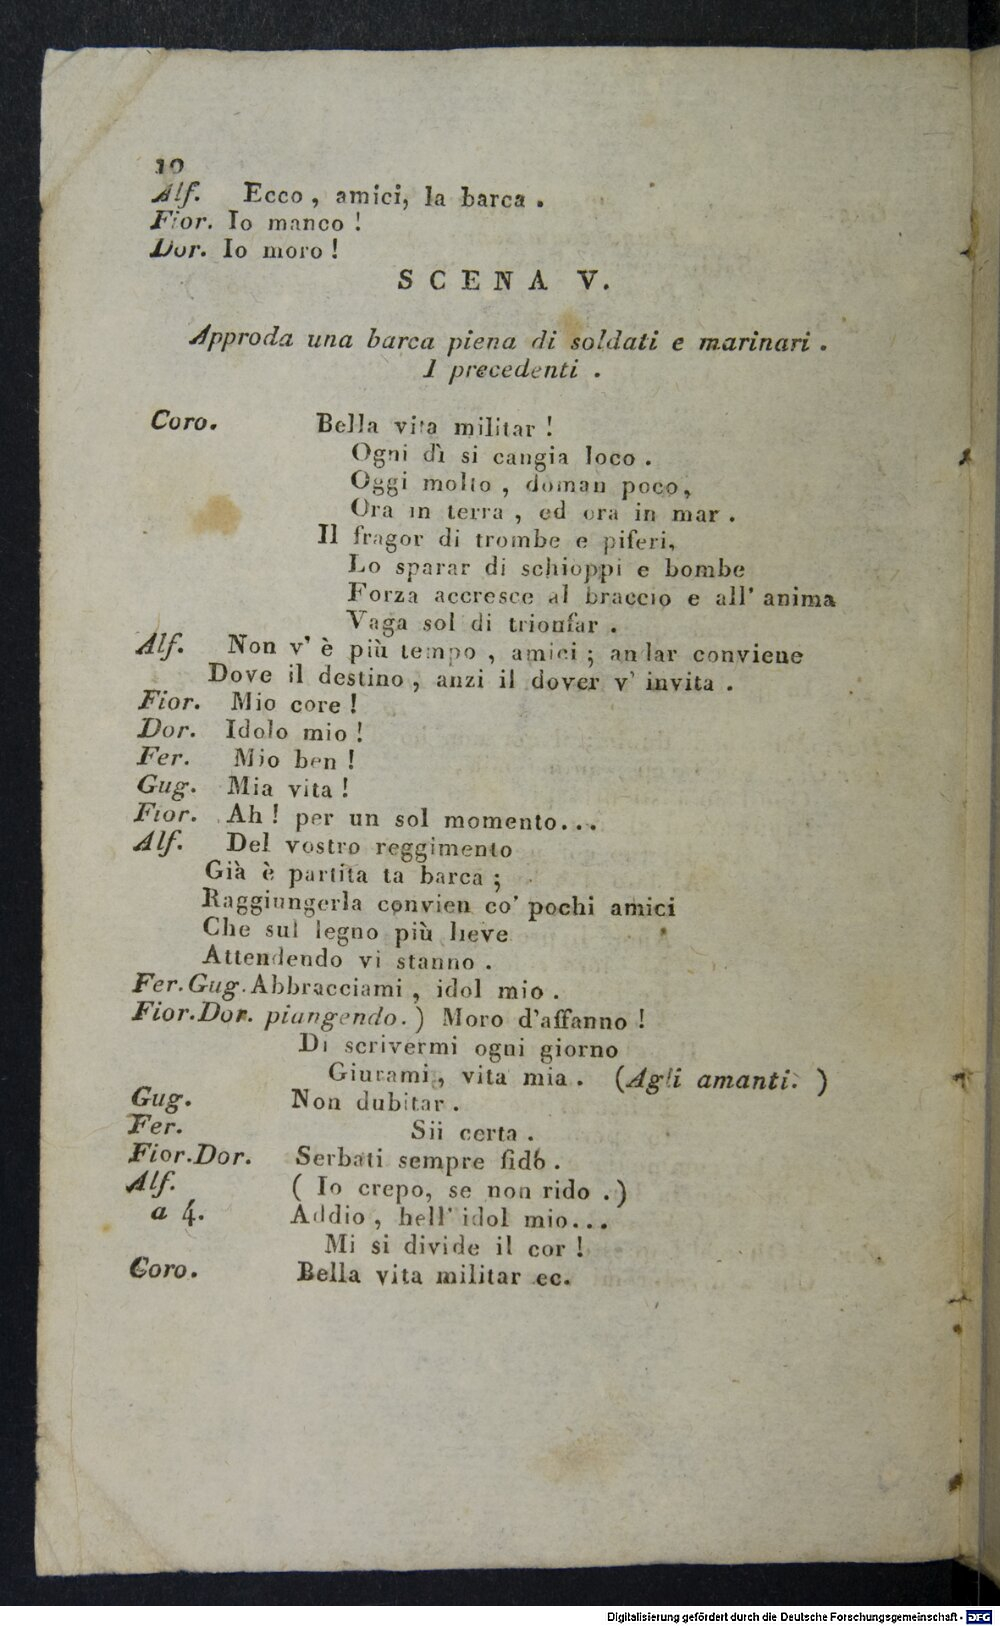 10
Alf. Ecco, amici, la barca.
Fior. Io manco!
Dor. Io moro!
SCENA V.
Approda una barca piena di soldati e marinari.
I precedenti.
Coro. Bella vita militar!
Ogni dì si cangia loco.
Oggi molto, doman poco,
Ora in terra, ed ora in mar.
Il fragor di trombe e piferi,
Lo sparar di schioppi e bombe
Forza accresce al braccio e all' anima
Vaga sol di trionfar.
Alf. Non v' è più tempo, amici; andar conviene
Dove il destino, anzi il dover v' invita.
Fior. Mio core!
Dor. Idolo mio!
Fer. Mio ben!
Gug. Mia vita!
Fior. Ah! per un sol momento...
Alf. Del vostro reggimento
Già è partita ta barca;
Raggiungerla convien co' pochi amici
Che sul legno più lieve
Attendendo vi stanno.
Fer. Gug. Abbracciami, idol mio.
Fior. Dor. piangendo.) Moro d'affanno!
Di scrivermi ogni giorno
Giurami, vita mia. (Agli amanti.)
Gug. Non dubitar.
Fer. Sii certa.
Fior. Dor. Serbati sempre fido.
Alf. (Io crepo, se non rido.)
a 4. Addio, bell' idol mio...
Mi si divide il cor!
Coro. Bella vita militar ec.
Digitalisierung gefördert durch die Deutsche Forschungsgemeinschaft - DFG